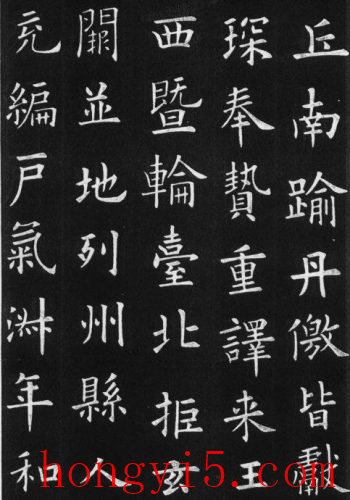 丘南踰丹徼皆獻
琛奉贄重譯来王
西暨輪臺北拒玄
闕並地列州縣人
充編戶氣淑年和
hongyi5.com